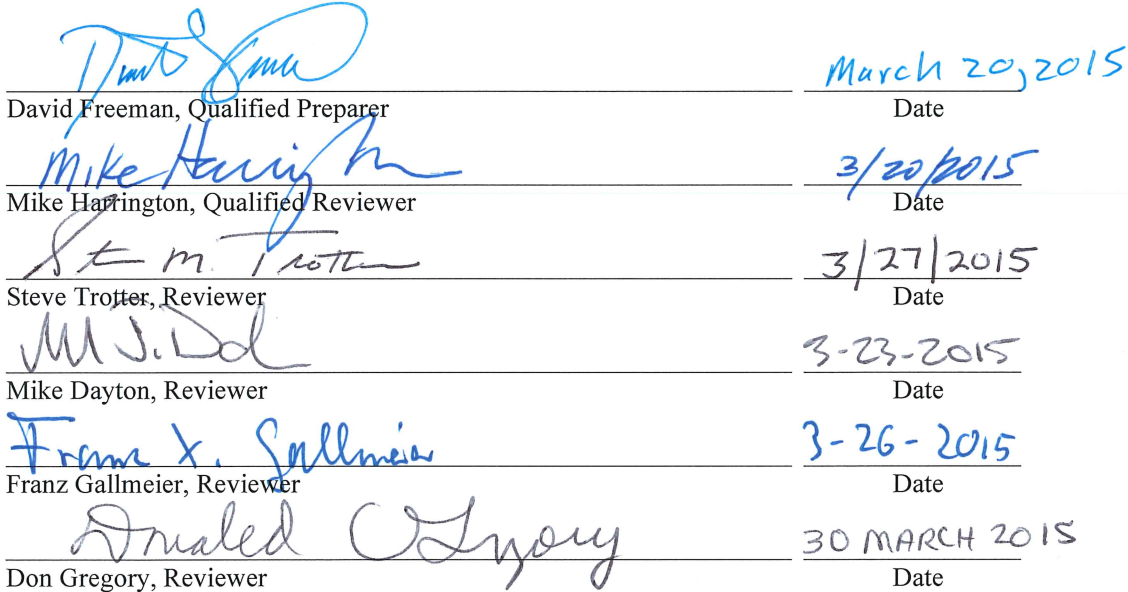 March 20, 2015
David Freeman, Qualified Preparer Date
Mike Harrington 3/20/2015
Mike Harrington, Qualified Reviewer Date
M. Trotter 3/27/2015
Steve Trotter, Reviewer Date
M J. D 3-23-2015
Mike Dayton, Reviewer Date
Franz X. Gallmeier 3-26-2015
Franz Gallmeier, Reviewer Date
Donald Gregory 30 MARCH 2015
Don Gregory, Reviewer Date